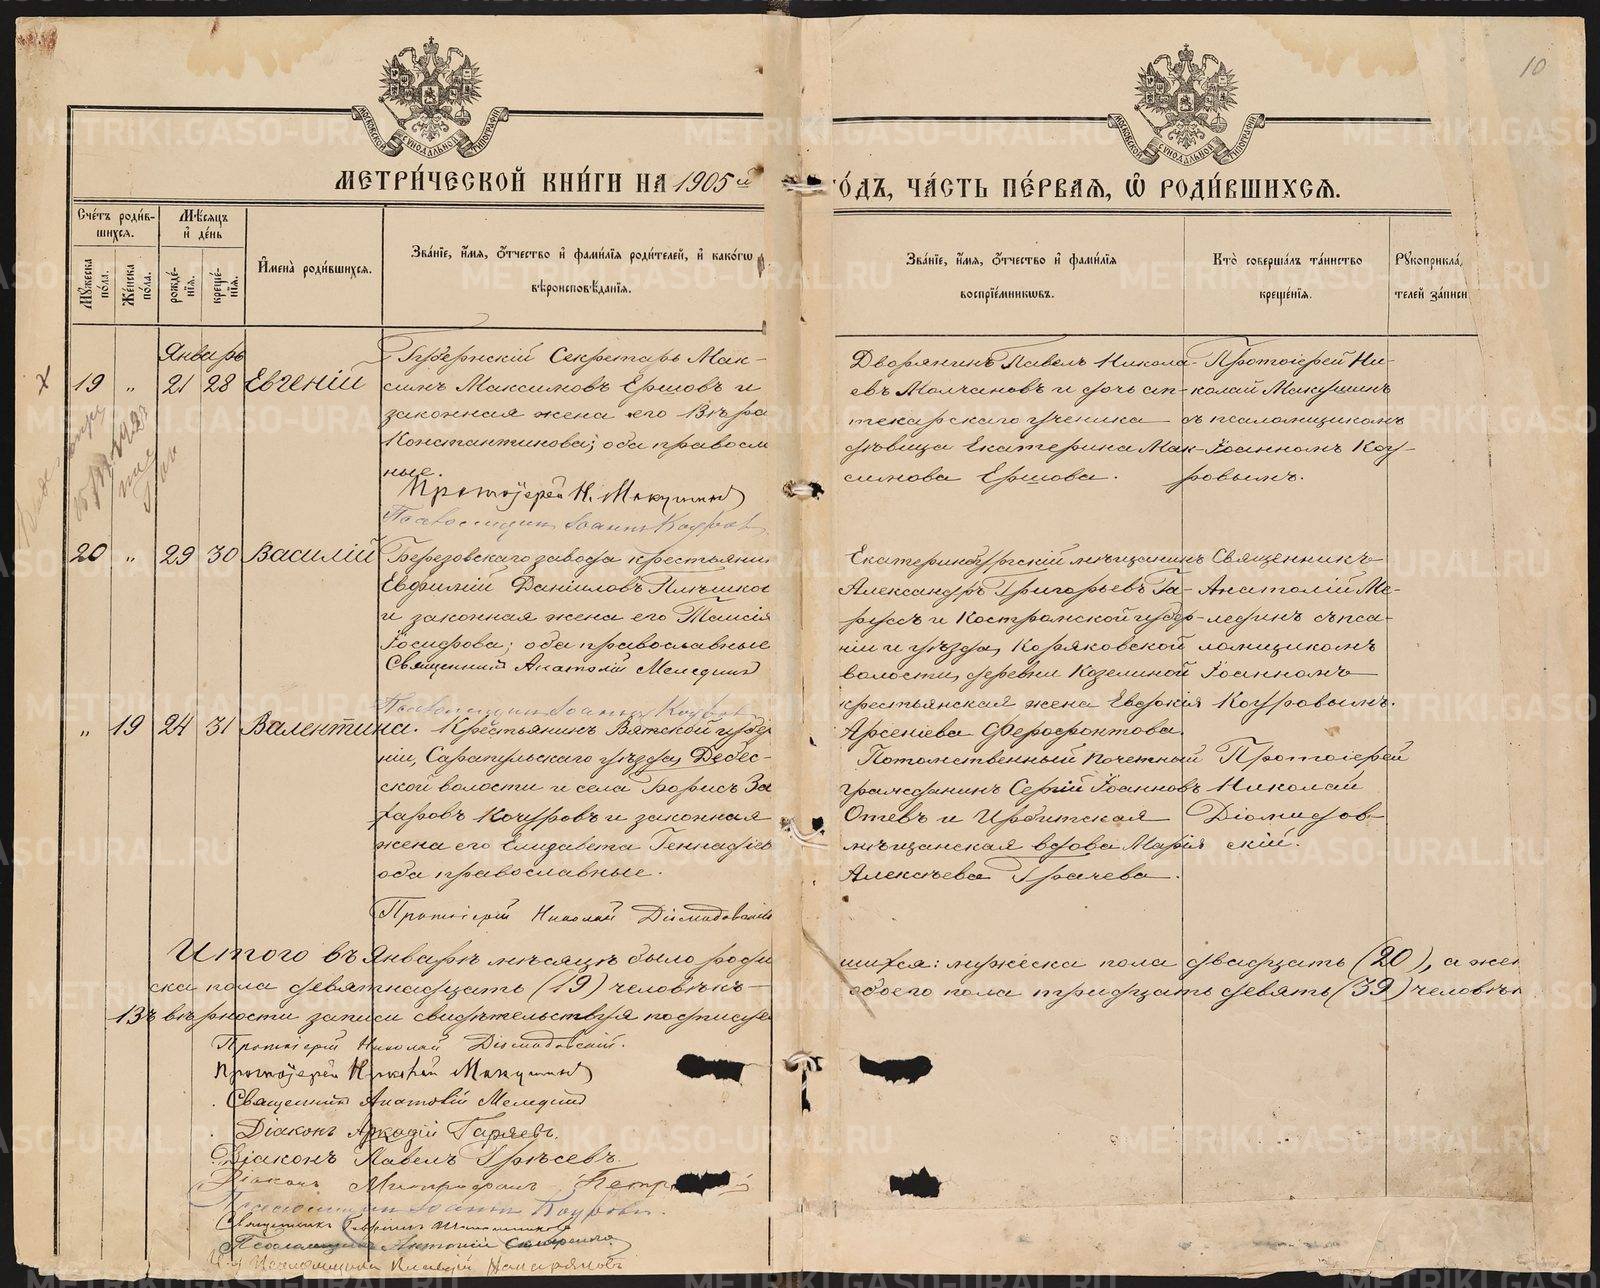 10
МОСКОВСКОЙ СѴНОДАЛЬНОЙ ТИПОГРАФІИ
МОСКОВСКОЙ СѴНОДАЛЬНОЙ ТИПОГРАФІИ
МЕТРИ́ЧЕСКОЙ КНИ́ГИ НА 1905 й
ГО́ДЪ, ЧА́СТЬ ПЕ́РВАЯ, Ѡ҆ РОДИ́ВШИХСЯ.
Сче́тъ роди́в-
шихся.
Мꙋ́жеска по́ла.
Же́нска по́ла.
Мѣ́сяцъ
и҆ де́нь
рожде́-
нїя.
креще́-
нїя.
И҆мена̀ роди́вшихся.
Зва́нїе, и҆́мя, ѻ҆́тчество и҆ фами́лїя роди́телей, и҆ како́гѡ
вѣроисповѣ́данїя.
Зва́нїе, и҆́мя, ѻ҆́тчество и҆ фами́лїя
воспрїе́мникѡвъ.
Кто̀ соверша́лъ та́инство
креще́нїя.
Рꙋкоприкла́
телей за́писи
Январь
19 " 21 28 Евгеній
Губернскій Секретарь Мак-
симъ Максимовъ Ершовъ и
законная жена его Вѣра
Константинова; оба правосла
ные.
Протоіерей Н. Макушинъ
Псаломщикъ Іоаннъ Коуров
Дворянинъ Павелъ Никола-
евъ Молчановъ и дочь ап-
текарскаго ученика
дѣвица Екатерина Мак-
симова Ершова.
Протоіерей Ни-
колай Макушинъ
съ псаломщикомъ
Іоанномъ Коу-
ровымъ.
20 " 29 30 Василій
Березовскаго завода крестьянин
Евфимій Даніиловъ
и законная жена его Таисія
Іосифова; оба православные
Священникъ Анатолій Меледин
Псаломщикъ Іоаннъ Коуров
Екатеринбургскій мѣщанинъ
Александръ Григорьевъ Га-
и Костромской губер-
ніи и уѣзда, Коряковской
волости, деревни Козелиной
крестьянская жена Евдокія
Арсеніева Ферофонтова.
Священникъ
Анатолій Ме-
лединъ съ пса-
ломщикомъ
Іоанномъ
Коуровымъ.
" 19 24 31 Валентина.
Крестьянинъ Вятской губер
ніи, Сарапульскаго уѣзда, Дебес-
ской волости и села Борисъ За
харовъ Кочуровъ и законная
жена его Елизавета Геннадіев
оба православные.
Протоіерей Николай Діомидовскій
Потомственный Почетный
гражданинъ Сергій Іоанновъ
Отевъ и Ирбитская
мѣщанская вдова Марія
Алексѣева Грачева.
Протоіерей
Николай
Діомидов-
скій.
Итого въ Январѣ мѣсяцѣ было роди
вшихся: мужеска пола двадцать (20), а жен
ска пола девятнадцать (19) человѣкъ-
обоего пола тридцать девять (39) человѣк
Въ вѣрности записи свидѣтельствуя подписуе
Протоіерей Николай Діомидовскій.
Протоіерей Николай Макушинъ
Священникъ Анатолій Меледин
Діаконъ Аркадій Гаряевъ.
Діаконъ Павелъ Грѣсевъ.
Діаконъ Митрофанъ Петр
Псаломщикъ Іоаннъ Коуровъ.
Священникъ
Псаломщикъ Антоній
Псаломщика
METRIKI.GASO-URAL.RU